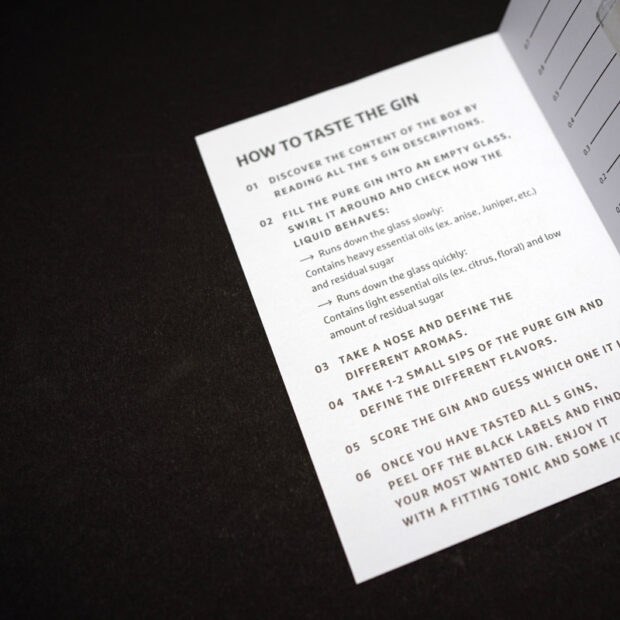 HOW TO TASTE THE GIN
01 DISCOVER THE CONTENT OF THE BOX BY
READING ALL THE 5 GIN DESCRIPTIONS.
02 FILL THE PURE GIN INTO AN EMPTY GLASS,
SWIRL IT AROUND AND CHECK HOW THE
LIQUID BEHAVES:
→ Runs down the glass slowly:
Contains heavy essential oils (ex. anise, Juniper, etc.)
and residual sugar
→ Runs down the glass quickly:
Contains light essential oils (ex. citrus, floral) and low
amount of residual sugar
03 TAKE A NOSE AND DEFINE THE
DIFFERENT AROMAS.
04 TAKE 1-2 SMALL SIPS OF THE PURE GIN AND
DEFINE THE DIFFERENT FLAVORS.
05 SCORE THE GIN AND GUESS WHICH ONE IT
06 ONCE YOU HAVE TASTED ALL 5 GINS,
PEEL OFF THE BLACK LABELS AND FIND
YOUR MOST WANTED GIN. ENJOY IT
WITH A FITTING TONIC AND SOME
0.4
0.3
0.2